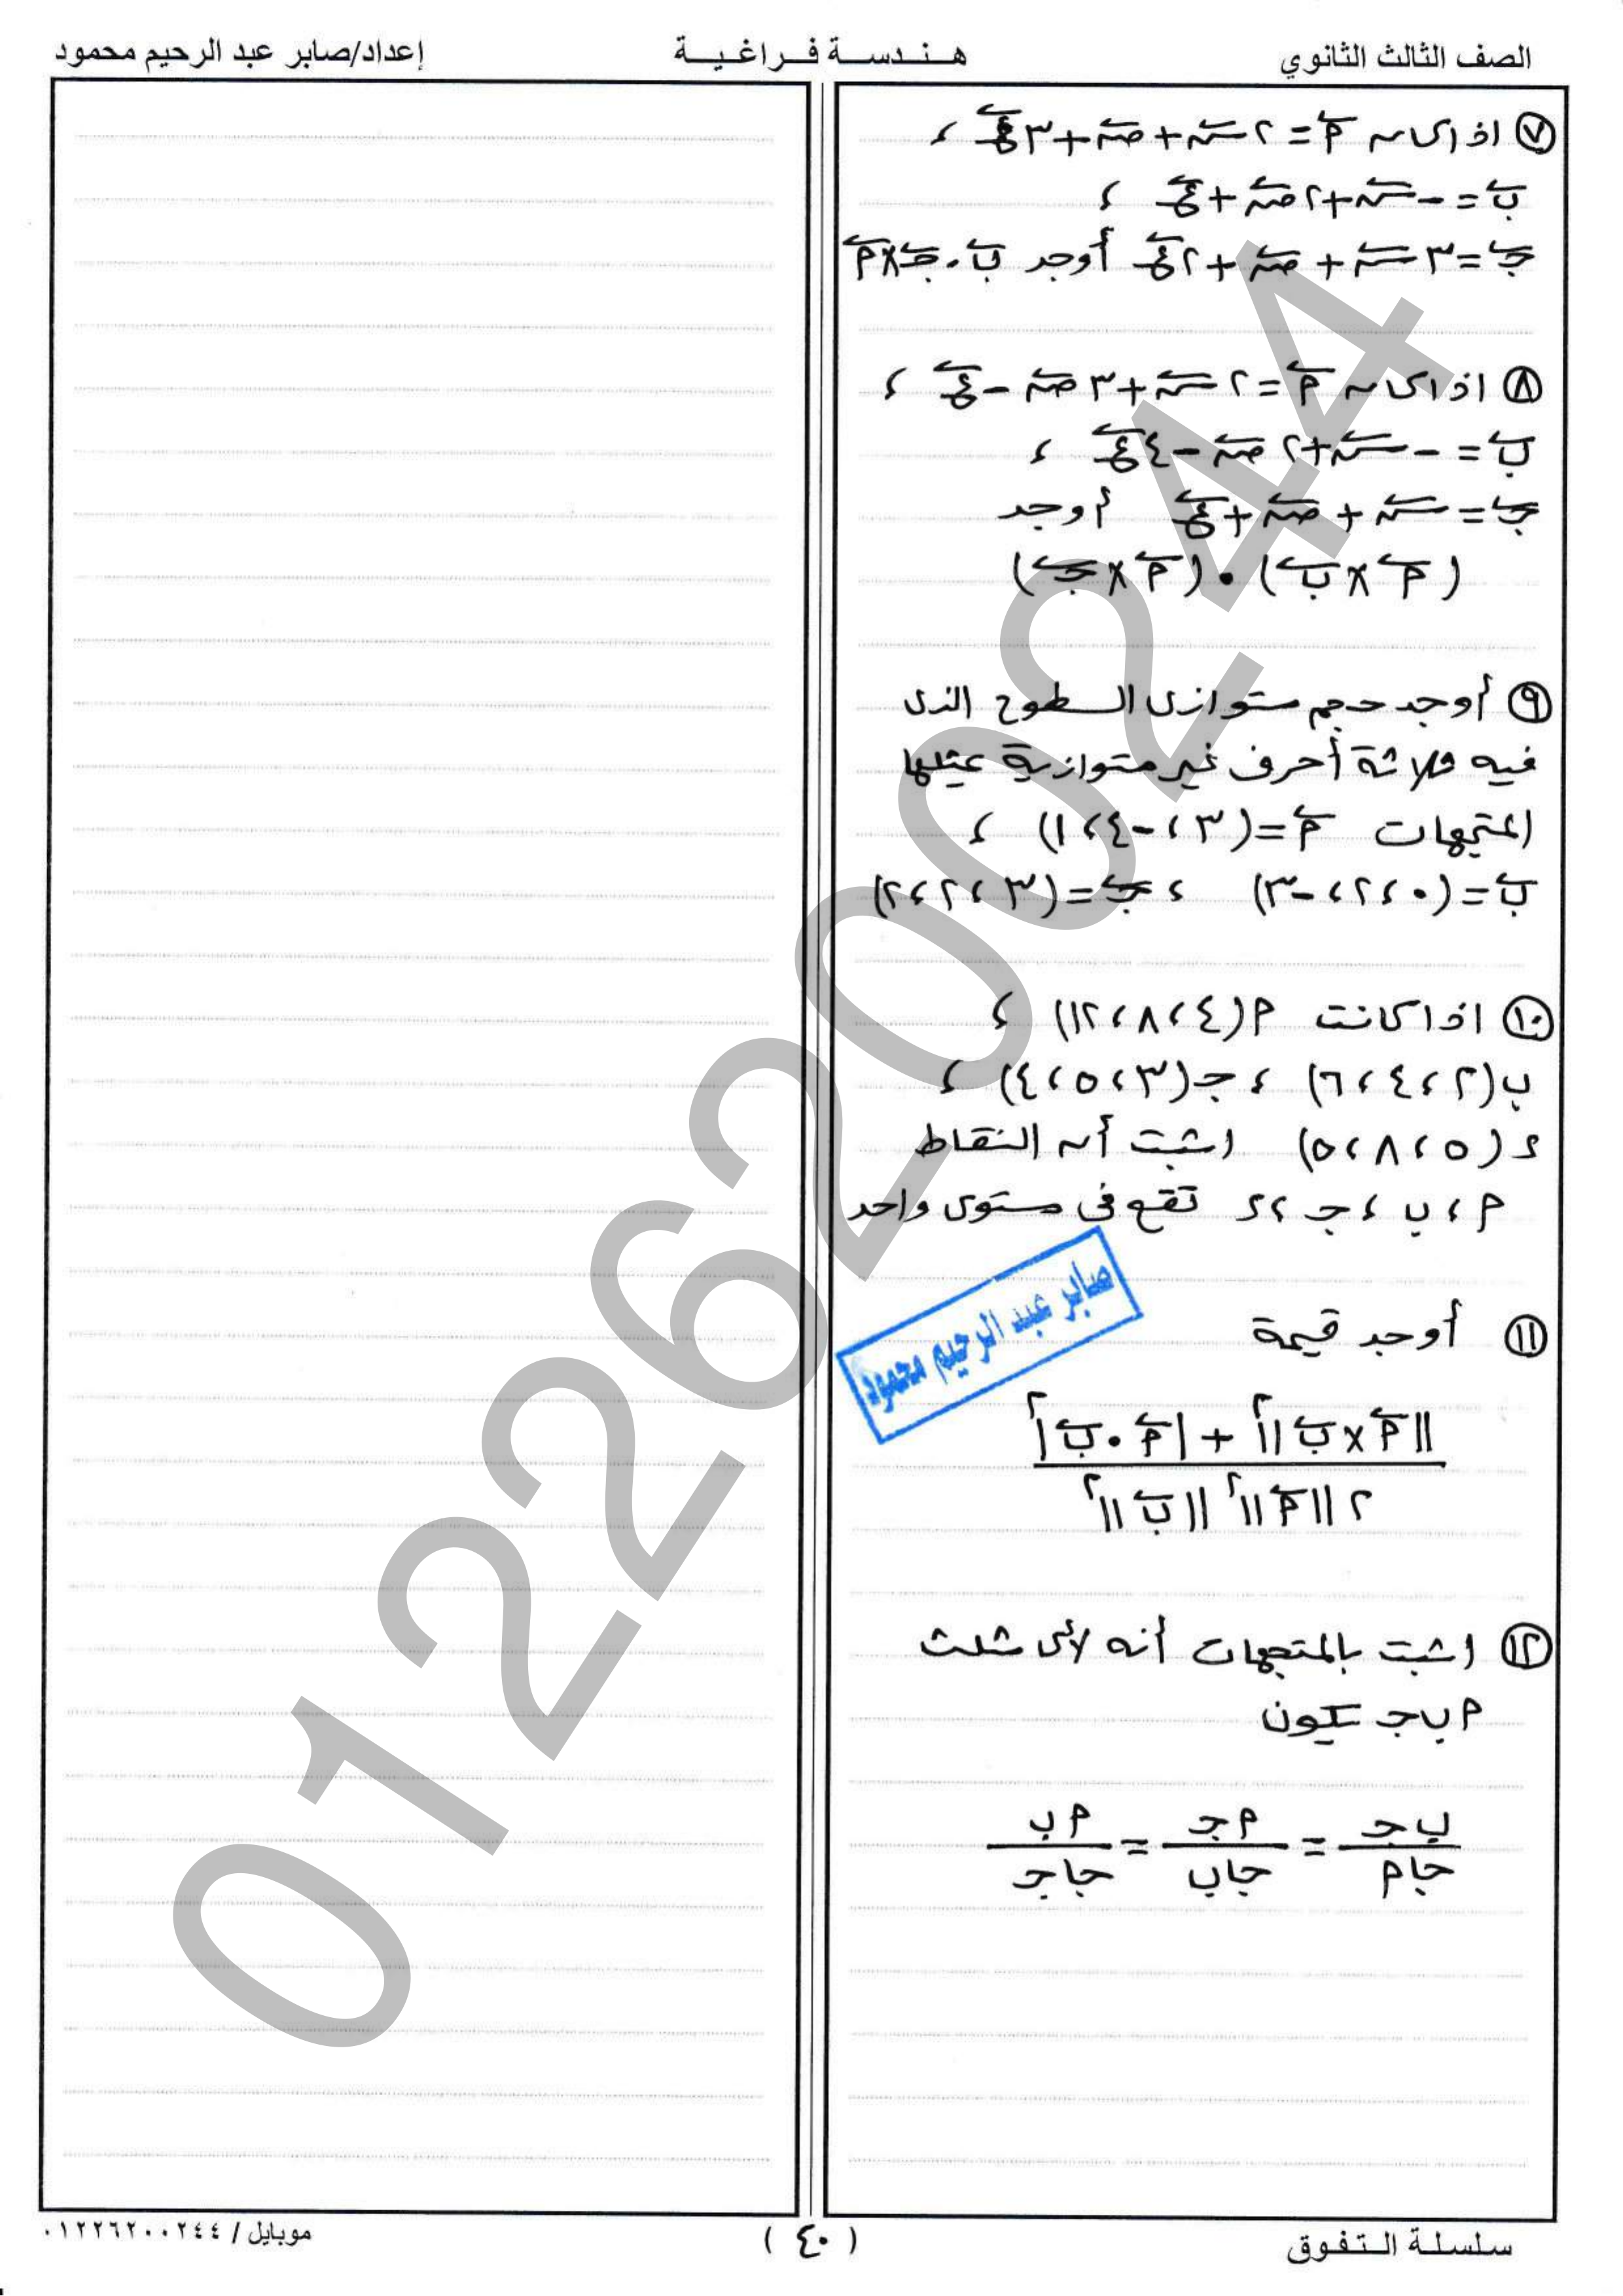 الصف الثالث الثانوي
هـنـدسـة فـراغـيـة
إعداد/صابر عبد الرحيم محمود
٧ اذا كان أ = ٢ س + ص + ٣ ع ،
ب = - س + ٢ ص + ع ،
جـ = ٣ س + ص + ٢ ع أوجد ب . جـ × أ
٨ اذا كان أ = ٢ س + ٣ ص - ع ،
ب = - س + ٢ ص - ٤ ع ،
جـ = س + ص + ع أوجد
( أ × ب ) . ( أ × جـ )
٩ أوجد حجم متوازى السطوح الذى
فيه ثلاثة أحرف غير متوازية يمثلها
المتجهات أ = (٣ ، -٤ ، ١) ،
ب = (٠ ، ٢ ، -٣) ، جـ = (٣ ، ٢ ، ٢)
١٠ اذا كانت أ (٤ ، ٨ ، ١٢) ،
ب (٢ ، ٤ ، ٦) ، جـ (٣ ، ٥ ، ٤) ،
ء (٥ ، ٨ ، ٥) اثبت أن النقاط
أ ، ب ، جـ ، ء تقع فى مستوى واحد
صابر عبد الرحيم محمود
١١ أوجد قيمة
||أ × ب||٢ + |أ . ب|٢
٢ ||أ||٢ ||ب||٢
١٢ اثبت بالمتجهات أنه لأى مثلث
أ ب جـ يكون
ب جـ / جا أ = أ جـ / جا ب = أ ب / جا جـ
سلسلة الـتـفـوق
( ٤٠ )
موبايل / ٠١٢٢٦٢٠٠٢٤٤
01226200244